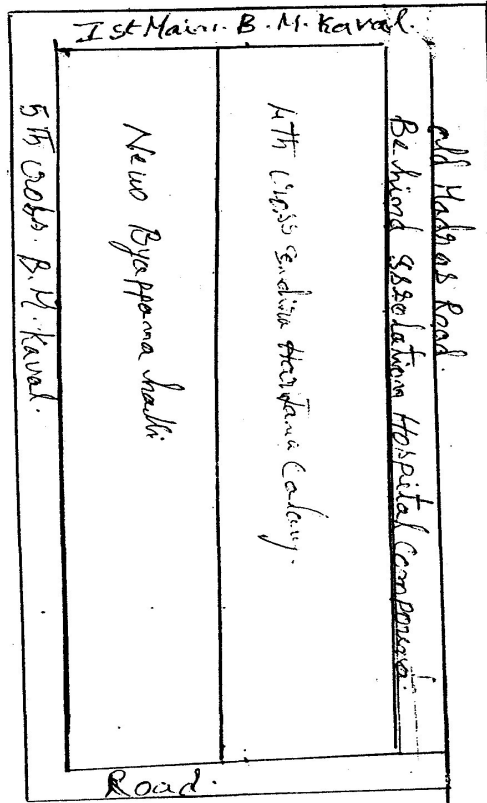 Ist Main. B.M. Kaval.
old Madras Road.
Behind Issolation Hospital Compound.
4th Cross Endira Harijana Calany.
New Byappana halli
5th cross. B.M. Kaval.
Road.